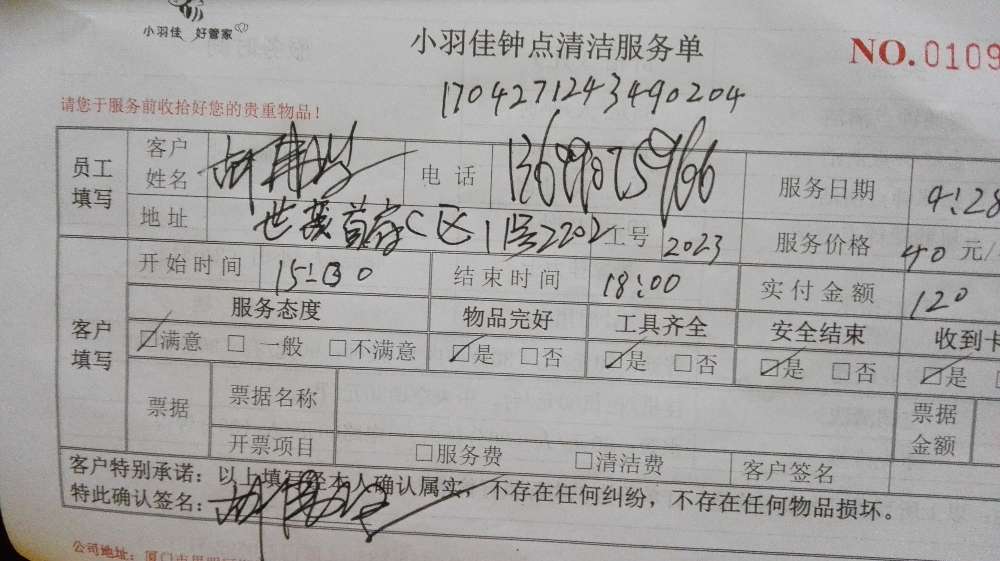 小羽佳 好管家
小羽佳钟点清洁服务单
NO.0109
1704271243490204
请您于服务前收拾好您的贵重物品！
员工填写 客户姓名 电话 服务日期 4:28
地址 C区 2202 工号 2023 服务价格 40 元/
客户填写 开始时间 15:00 结束时间 18:00 实付金额 120
服务态度 物品完好 工具齐全 安全结束 收到卡
☑满意 □ 一般 □不满意 ☑是 □否 ☑是 □否 ☑是 □否 ☑是
票据 票据名称 票据金额
开票项目 □服务费 □清洁费 客户签名
客户特别承诺：以上填写经本人确认属实，不存在任何纠纷，不存在任何物品损坏。
特此确认签名：
公司地址：厦门市思明区